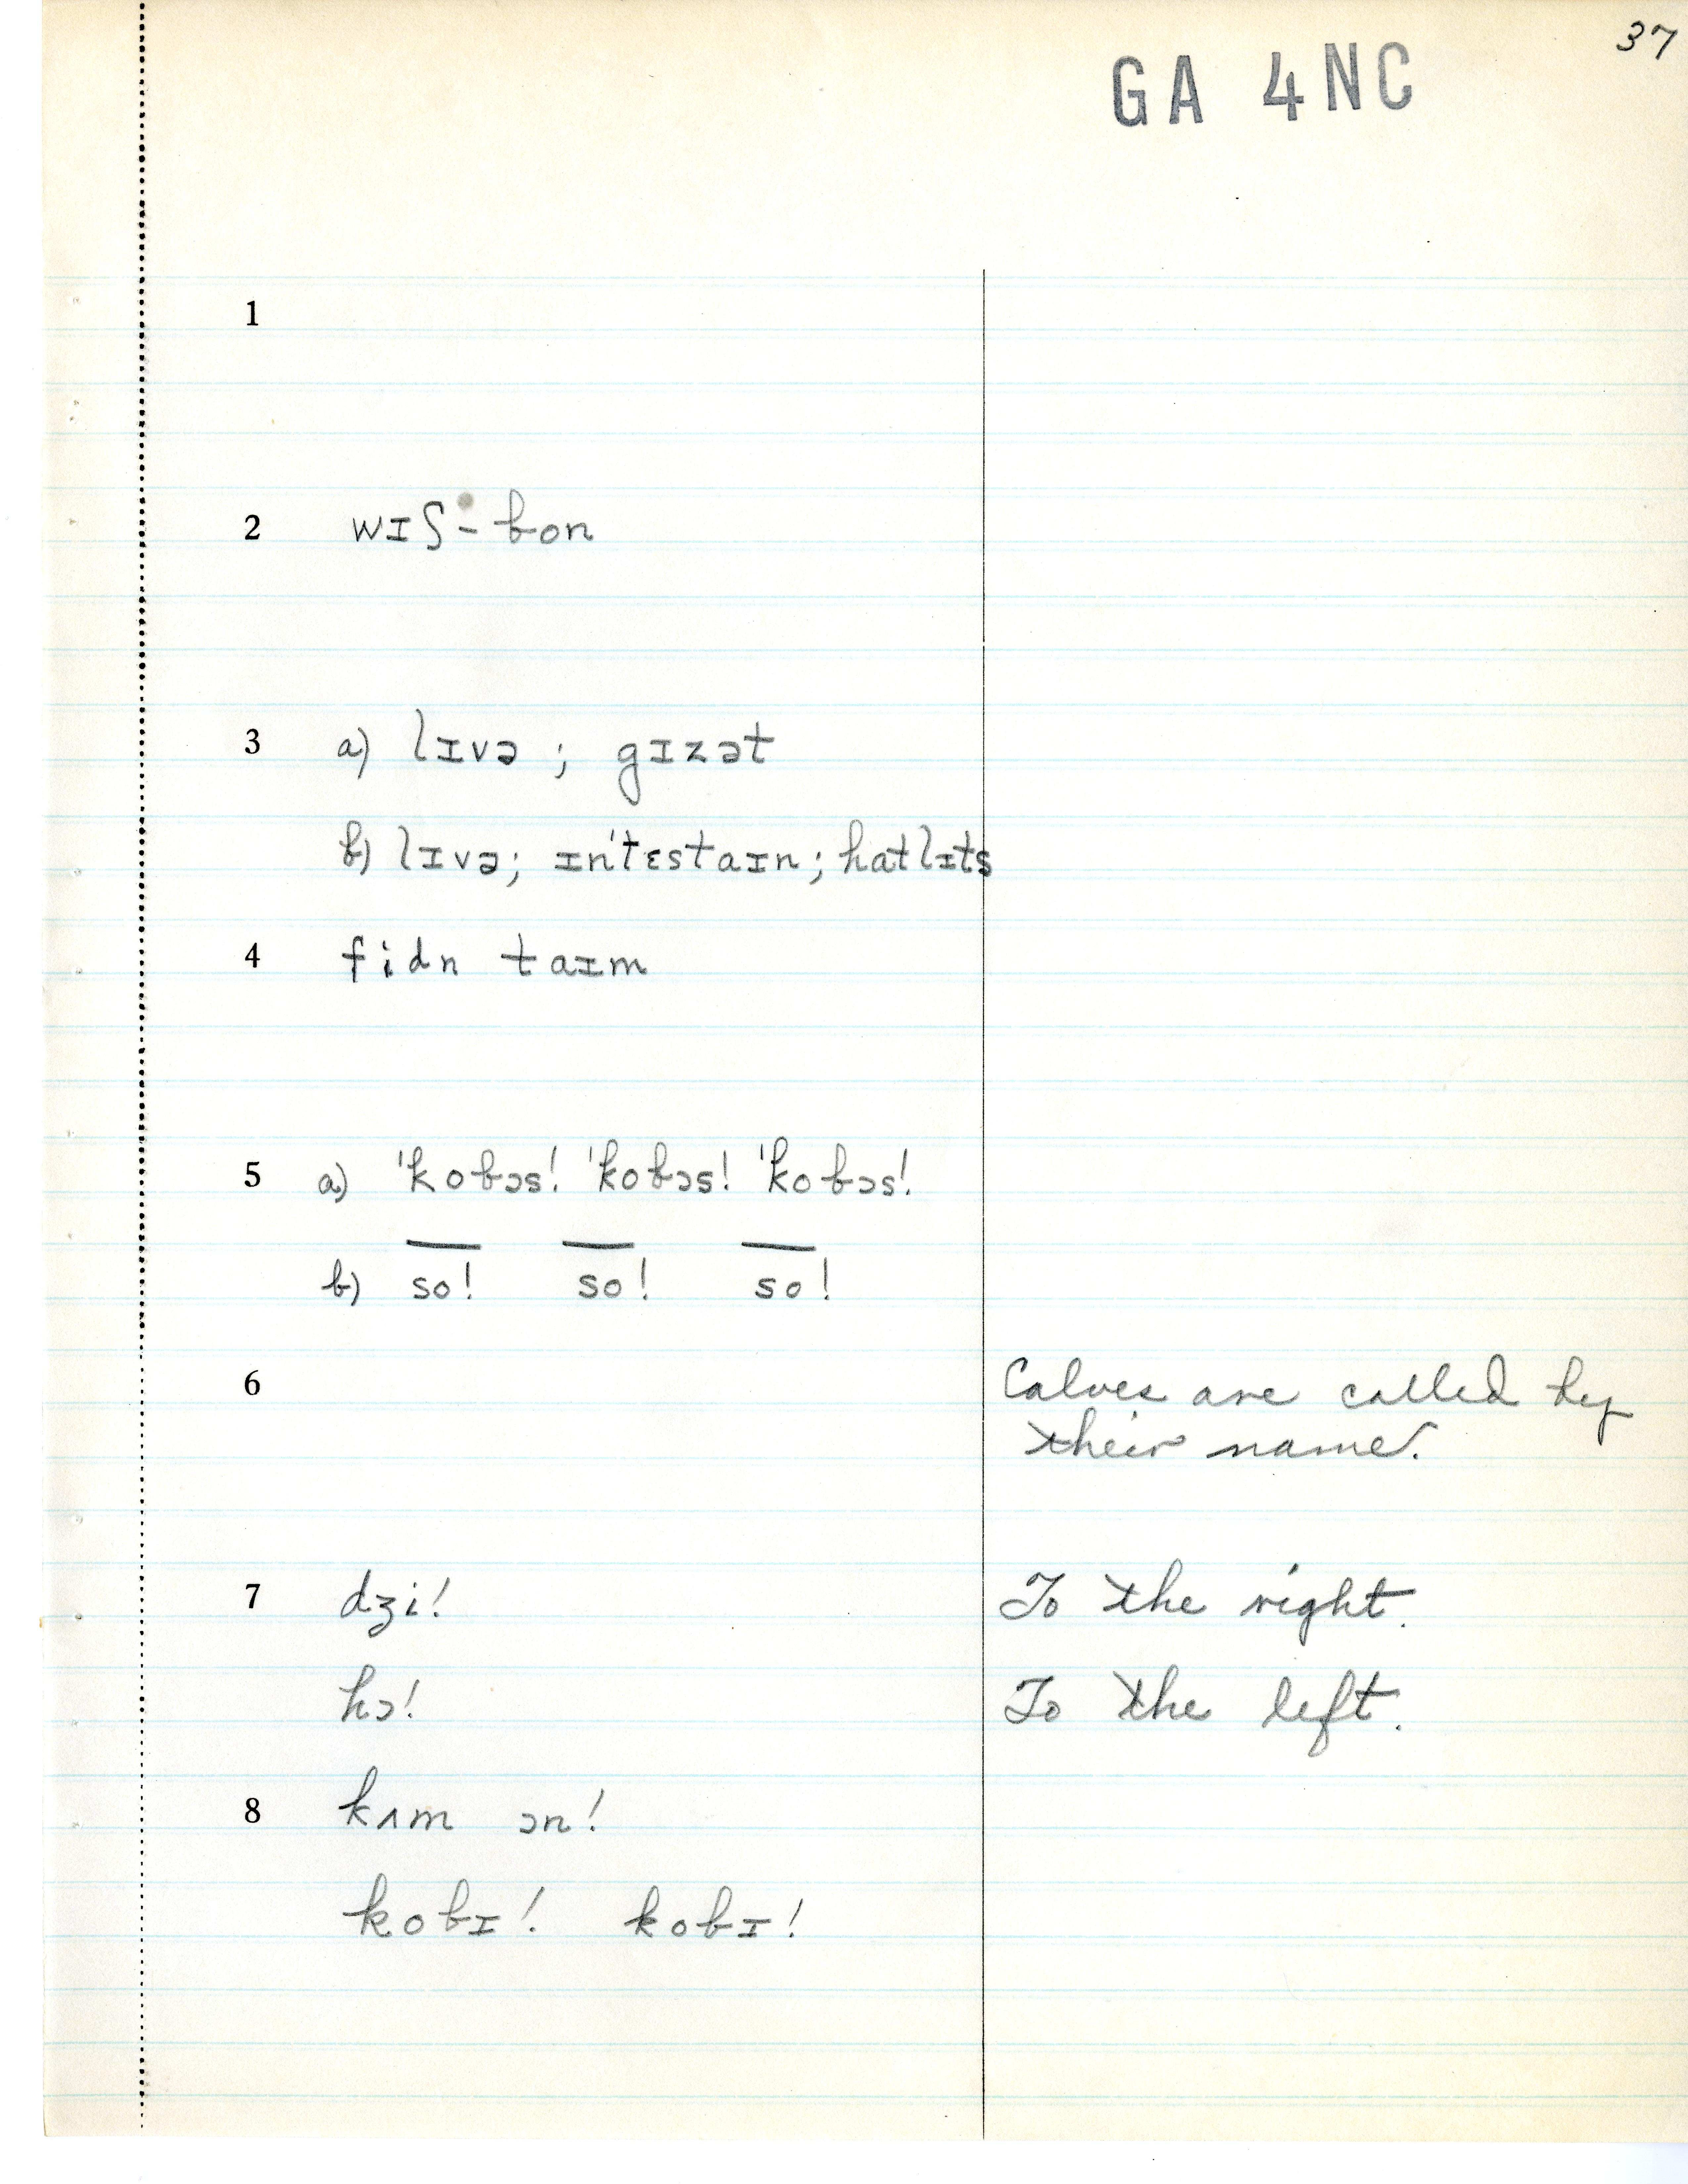 37
GA 4NC
1
2 wɪʃ-bon
3 a) lɪvə ; gɪzət
b) lɪvə; ɪn'tɛstaɪn; hatlɪts
4 fidn taɪm
5 a) 'kobɔs! 'kobɔs! 'kobɔs!
b) so! so! so!
6 Calves are called by
their name.
7 dʒi! To the right.
hɔ! To the left.
8 kʌm ɔn!
kobɪ! kobɪ!